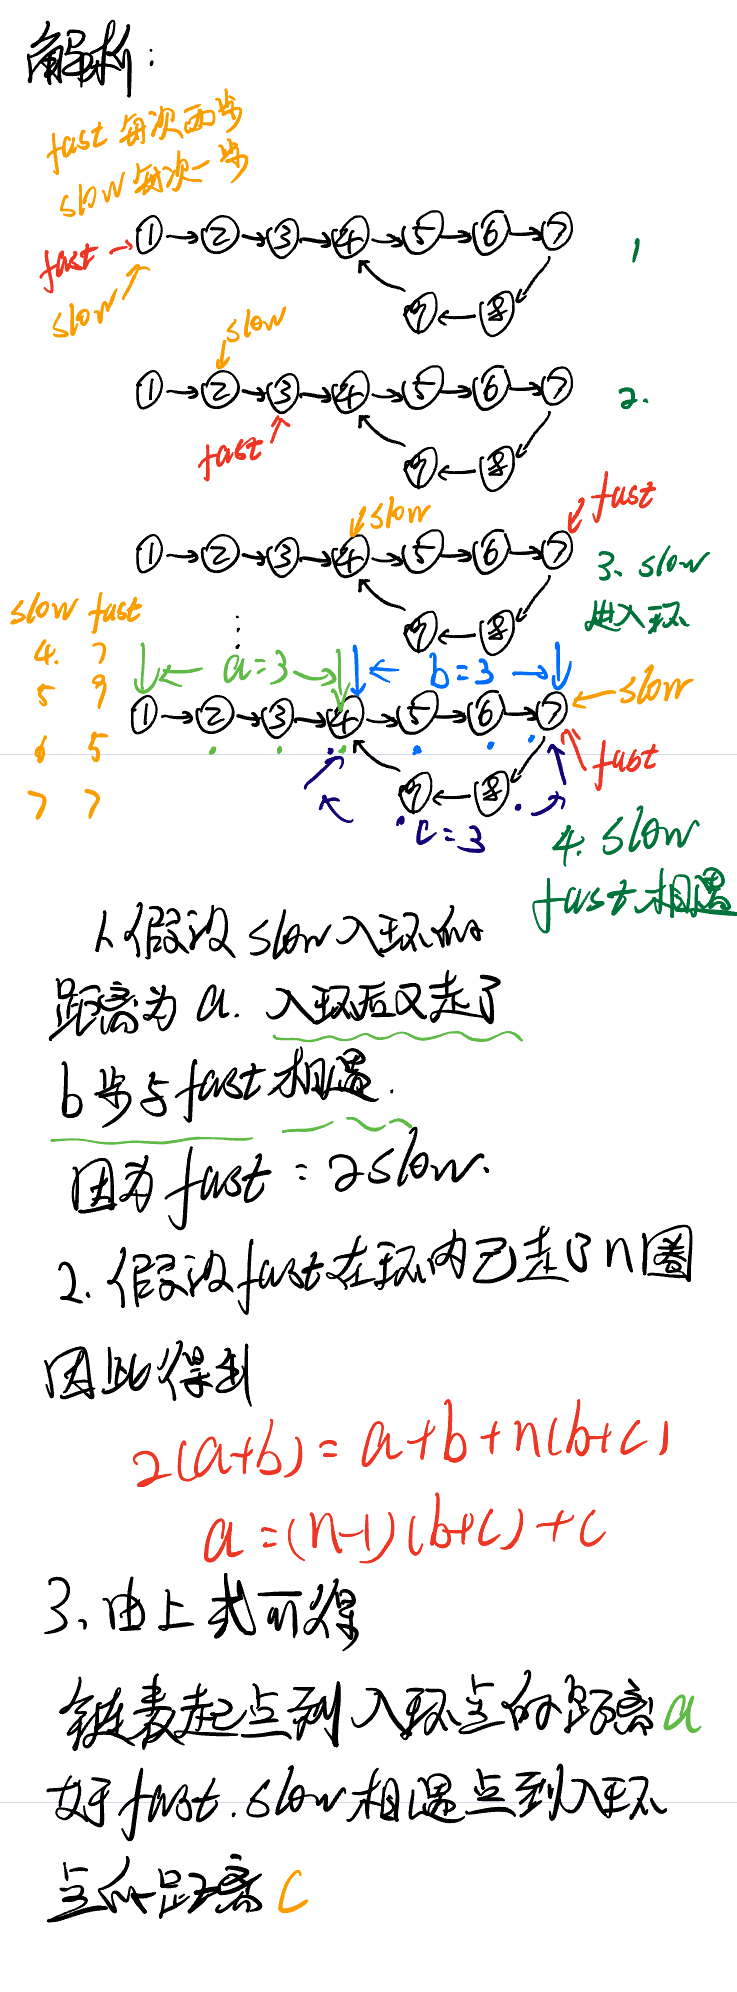 解析:
fast 每次两步
slow 每次一步
① → ② → ③ → ④ → ⑤ → ⑥ → ⑦
1
fast →
⑨ ← ⑧
slow
slow
① → ② → ③ → ④ → ⑤ → ⑥ → ⑦
2.
fast
⑨ ← ⑧
slow
fast
① → ② → ③ → ④ → ⑤ → ⑥ → ⑦
3、slow
进入环
⑨ ← ⑧
slow fast
4. 7
5 9
6 5
7 7
a=3
b=3
① → ② → ③ → ④ → ⑤ → ⑥ → ⑦
← slow
fast
⑨ ← ⑧
c=3
4. slow
fast 相遇
1.假设 slow 入环的
距离为 a. 入环后又走了
b 步与 fast 相遇.
因为 fast = 2slow.
2. 假设 fast 在环内已走了 n 圈
因此得到
2(a+b) = a+b+n(b+c)
a = (n-1)(b+c)+c
3、由上式可得
链表起点到入环点的距离 a
好于 fast. slow 相遇点到入环
点的距离 c